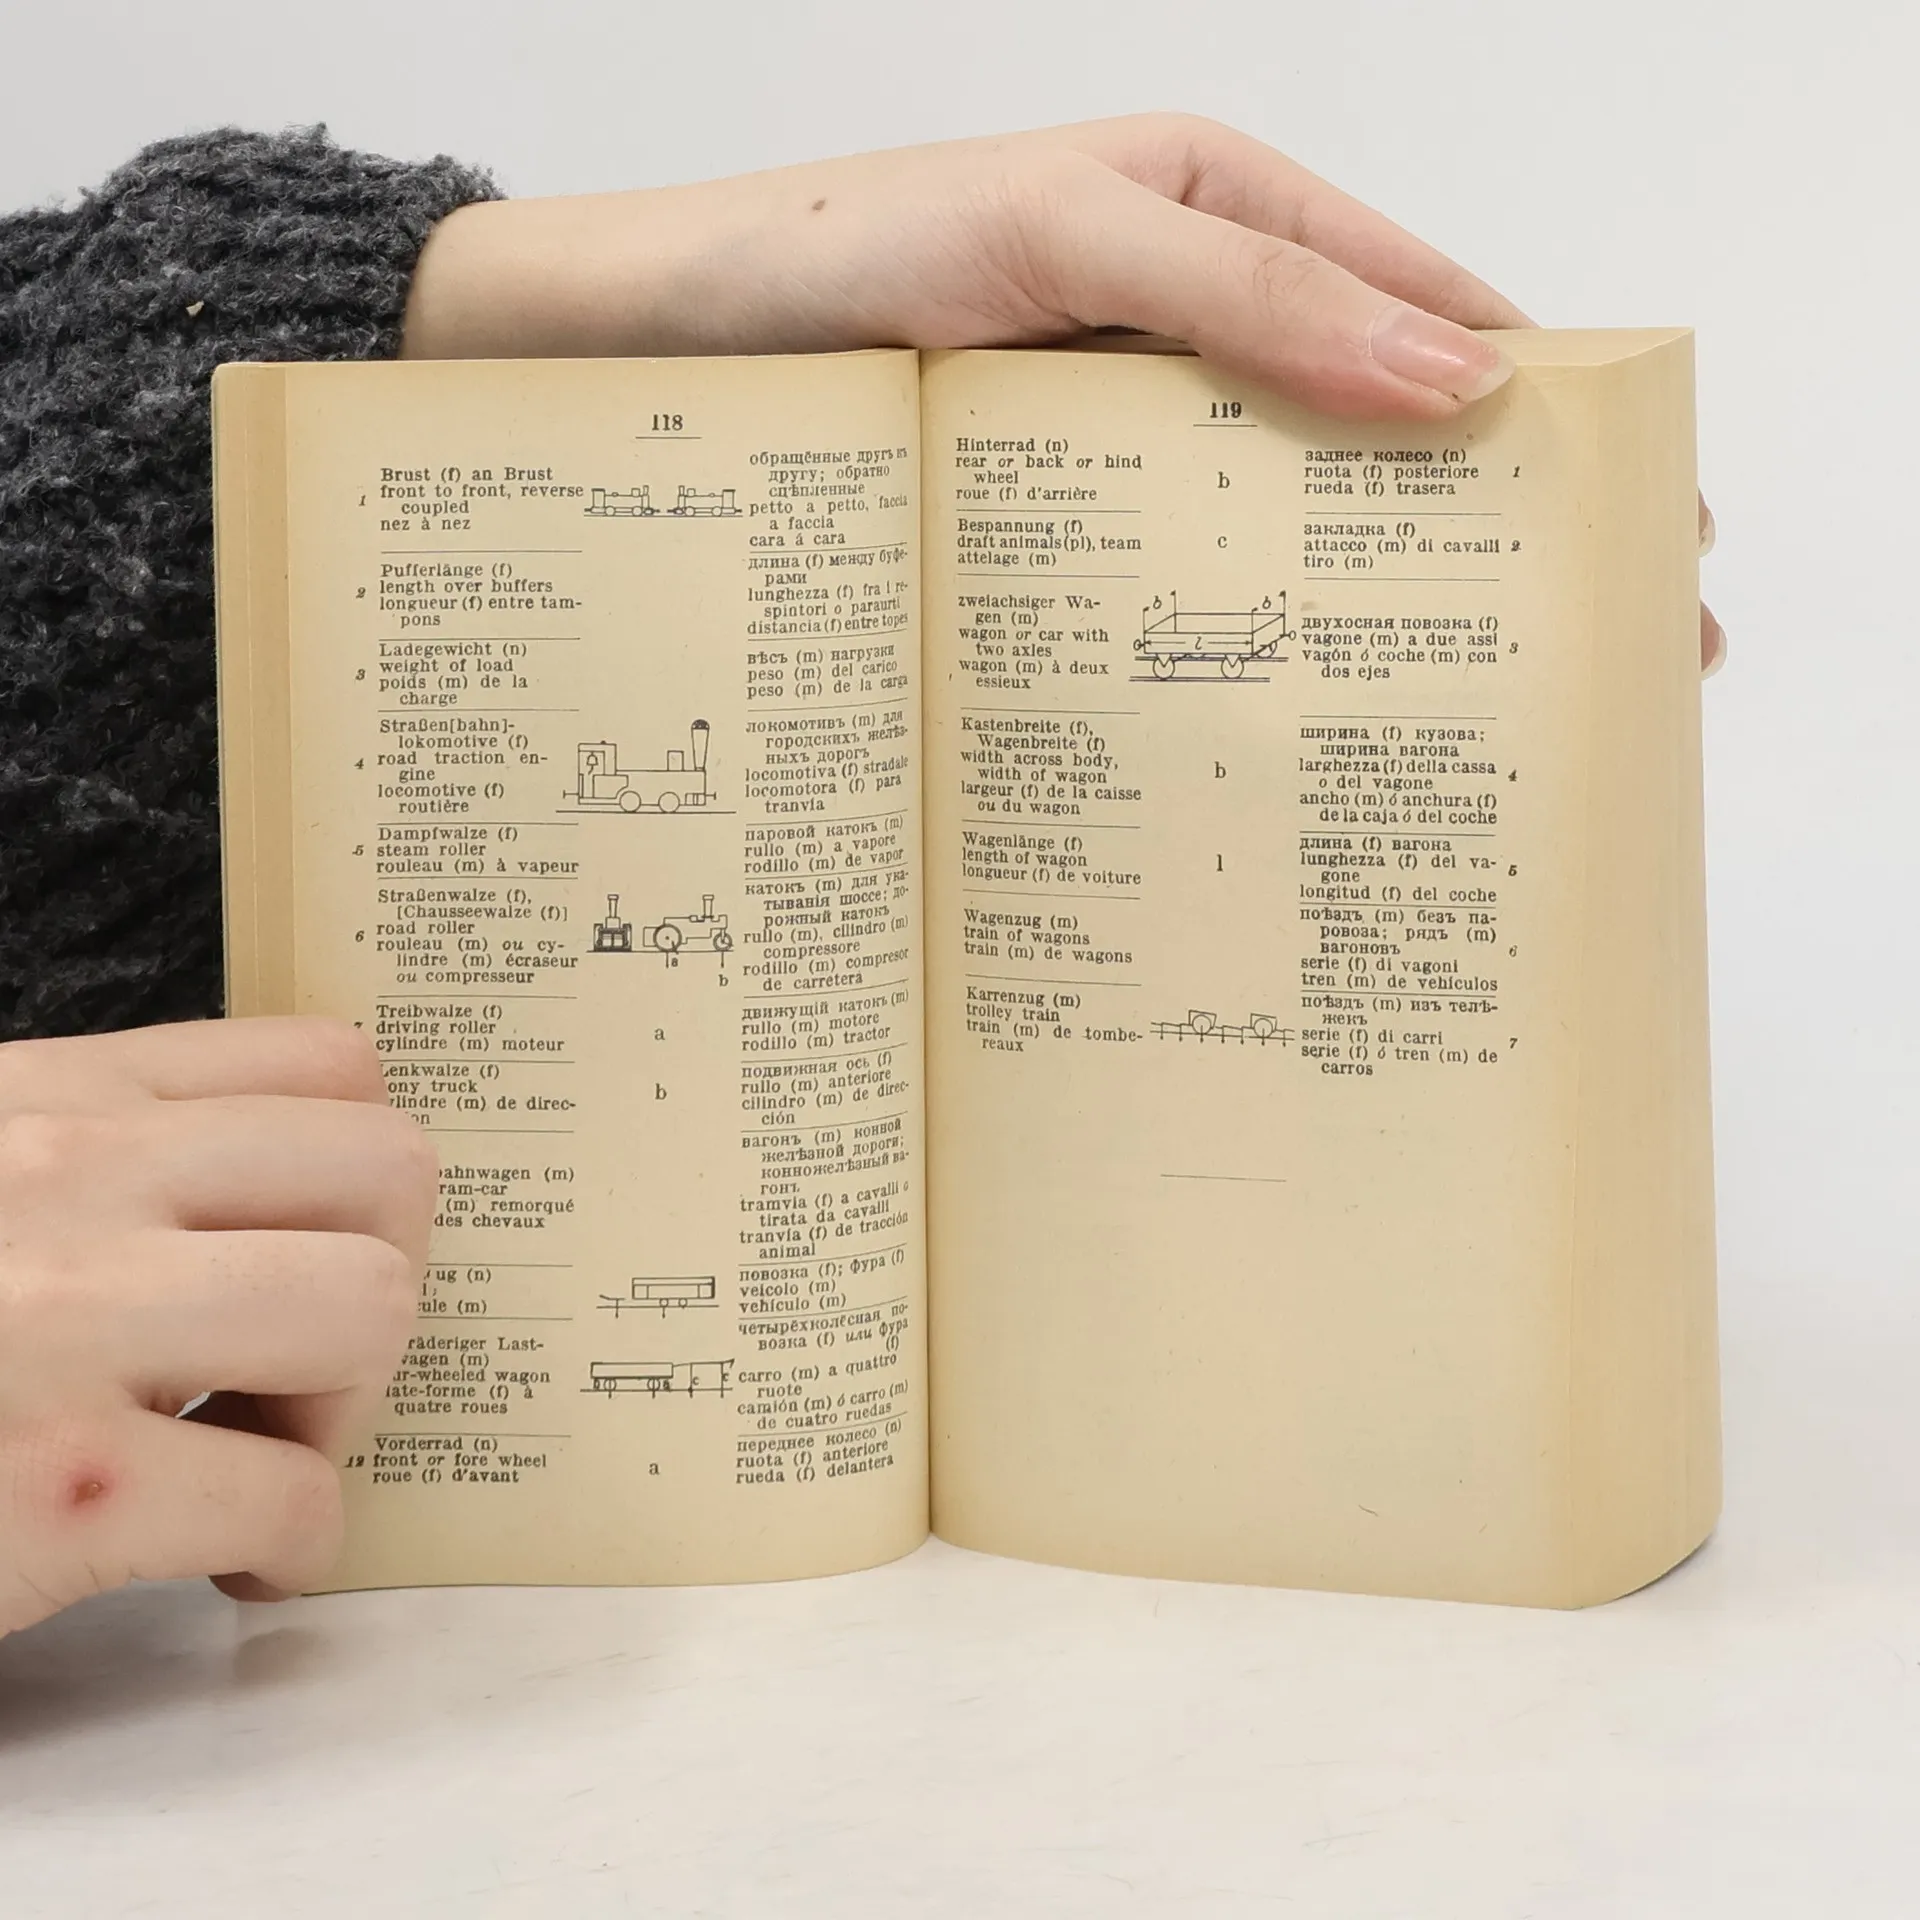 118
1
Brust (f) an Brust
front to front, reverse
coupled
nez à nez
обращённые другъ къ
другу; обратно
сцѣпленные
petto a petto, faccia
a faccia
cara á cara
2
Pufferlänge (f)
length over buffers
longueur (f) entre tam-
pons
длина (f) между буфе-
рами
lunghezza (f) fra i re-
spintori o paraurti
distancia (f) entre topes
3
Ladegewicht (n)
weight of load
poids (m) de la
charge
вѣсъ (m) нагрузки
peso (m) del carico
peso (m) de la carga
4
Straßen[bahn]-
lokomotive (f)
road traction en-
gine
locomotive (f)
routière
локомотивъ (m) для
городскихъ желѣз-
ныхъ дорогъ
locomotiva (f) stradale
locomotora (f) para
tranvía
5
Dampfwalze (f)
steam roller
rouleau (m) à vapeur
паровой катокъ (m)
rullo (m) a vapore
rodillo (m) de vapor
6
Straßenwalze (f),
[Chausseewalze (f)]
road roller
rouleau (m) ou cy-
lindre (m) écraseur
ou compresseur
a
b
катокъ (m) для ука-
тыванія шоссе; до-
рожный катокъ
rullo (m), cilindro (m)
compressore
rodillo (m) compresor
de carretera
7
Treibwalze (f)
driving roller
cylindre (m) moteur
a
движущій катокъ (m)
rullo (m) motore
rodillo (m) tractor
Lenkwalze (f)
ony truck
ylindre (m) de direc-
on
b
подвижная ось (f)
rullo (m) anteriore
cilindro (m) de direc-
ción
ahnwagen (m)
ram-car
(m) remorqué
des chevaux
вагонъ (m) конной
желѣзной дороги;
конножелѣзный ва-
гонъ
tramvia (f) a cavalli o
tirata da cavalli
tranvía (f) de tracción
animal
ug (n)
l;
cule (m)
повозка (f); фура (f)
veicolo (m)
vehículo (m)
räderiger Last-
wagen (m)
ur-wheeled wagon
late-forme (f) à
quatre roues
b a c c
четырёхколёсная по-
возка (f) или фура
(f)
carro (m) a quattro
ruote
camión (m) ó carro (m)
de cuatro ruedas
12
Vorderrad (n)
front or fore wheel
roue (f) d'avant
a
переднее колесо (n)
ruota (f) anteriore
rueda (f) delantera
119
Hinterrad (n)
rear or back or hind
wheel
roue (f) d'arrière
b
заднее колесо (n)
ruota (f) posteriore
rueda (f) trasera
1
Bespannung (f)
draft animals (pl), team
attelage (m)
c
закладка (f)
attacco (m) di cavalli
tiro (m)
2
zweiachsiger Wa-
gen (m)
wagon or car with
two axles
wagon (m) à deux
essieux
b b
l
двухосная повозка (f)
vagone (m) a due assi
vagón ó coche (m) con
dos ejes
3
Kastenbreite (f),
Wagenbreite (f)
width across body,
width of wagon
largeur (f) de la caisse
ou du wagon
b
ширина (f) кузова;
ширина вагона
larghezza (f) della cassa
o del vagone
ancho (m) ó anchura (f)
de la caja ó del coche
4
Wagenlänge (f)
length of wagon
longueur (f) de voiture
l
длина (f) вагона
lunghezza (f) del va-
gone
longitud (f) del coche
5
Wagenzug (m)
train of wagons
train (m) de wagons
поѣздъ (m) безъ па-
ровоза; рядъ (m)
вагоновъ
serie (f) di vagoni
tren (m) de vehículos
6
Karrenzug (m)
trolley train
train (m) de tombe-
reaux
поѣздъ (m) изъ телѣ-
жекъ
serie (f) di carri
serie (f) ó tren (m) de
carros
7